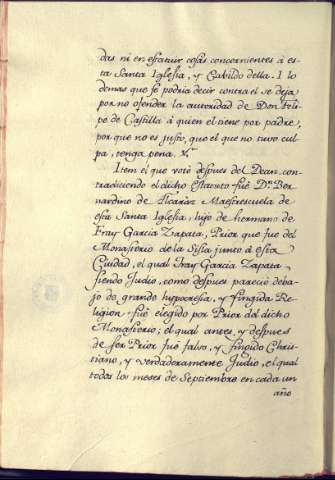 das ni en estatuir cosas concernientes à es-
ta Santa Iglesia, y Cabildo della. I lo
demas que se podria decir contra el se deja
por no ofender la autoridad de Don Feli-
pe de Castilla à quien el tiene por padre,
por que no es justo, que el que no tuvo cul-
pa, tenga pena.
Item el que votò despues del Dean con-
tradiciendo el dicho Estatuto fuè Dn. Ber-
nardino de Alcaraz Maestrescuela de
esta Santa Iglesia, hijo de hermano de
Fray Garcia Zapata, Prior que fue del
Monasterio de la Sisla junto à esta
Ciudad, el qual Fray Garcia Zapata
siendo Judio, como despues pareciò deba-
jo de grande hypocresia, y fingida Re-
ligion fuè elegido por Prior del dicho
Monasterio; el qual antes, y despues
de ser Prior fuè falso, y fingido Chris-
tiano, y verdaderamente Judio, el qual
todos los meses de Septiembre en cada un
año